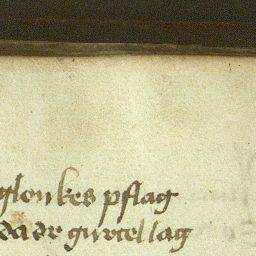 glonkes pflag
da dr gurtel lag